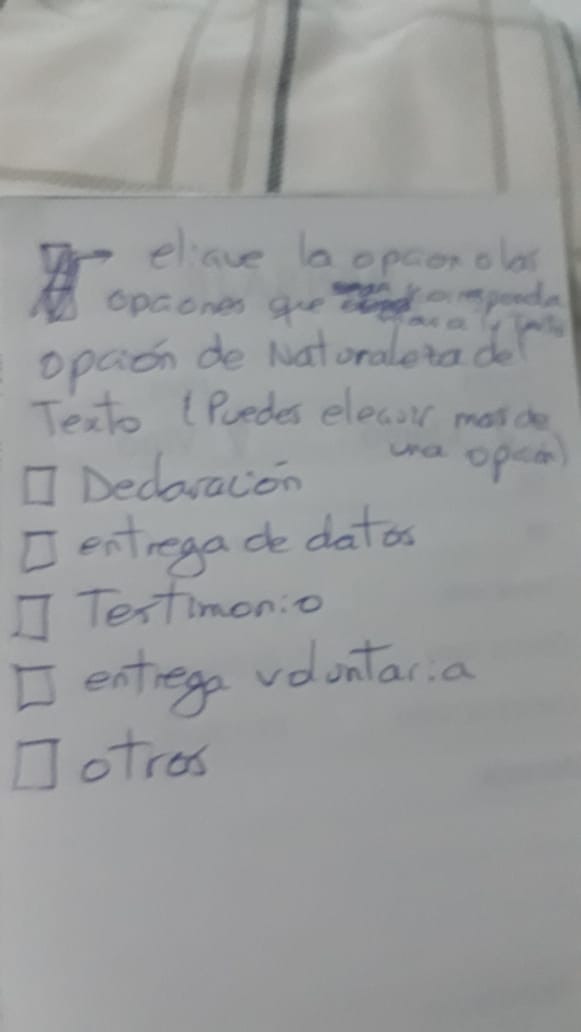 elique la opcion o las
opciones que corresponda
opción de Naturaleza del
Texto (Puedes elecoir mas de
una opción)
Declaración
entrega de datos
Testimonio
entrega voluntaria
otros